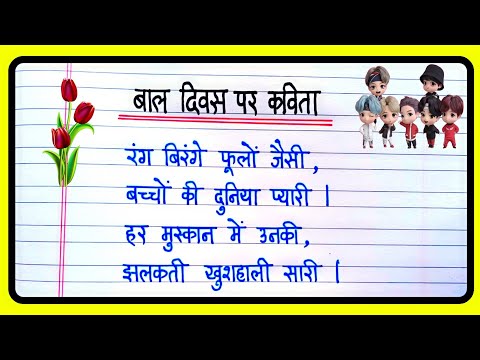 बाल दिवस पर कविता
रंग बिरंगे फूलों जैसी,
बच्चों की दुनिया प्यारी ।
हर मुस्कान में उनकी,
झलकती खुशहाली सारी ।